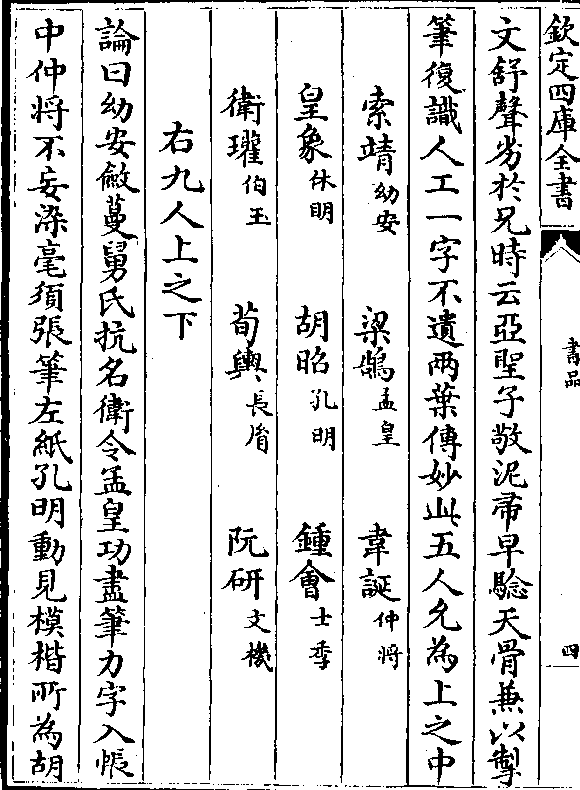 欽定四庫全書
書品
四
文舒聲劣於兄時云亞聖子敬泥帚早驗天骨兼以掣
筆復識人工一字不遺兩葉傳妙此五人允為上之中
索靖幼安 梁鵠孟皇 韋誕仲將
皇象休明 胡昭孔明 鍾會士季
衛瓘伯玉 荀輿長胤 阮研文機
右九人上之下
論曰幼安斂蔓舅氏抗名衛令孟皇功盡筆力字入帳
中仲将不妄染毫須張筆左紙孔明動見模楷所為胡